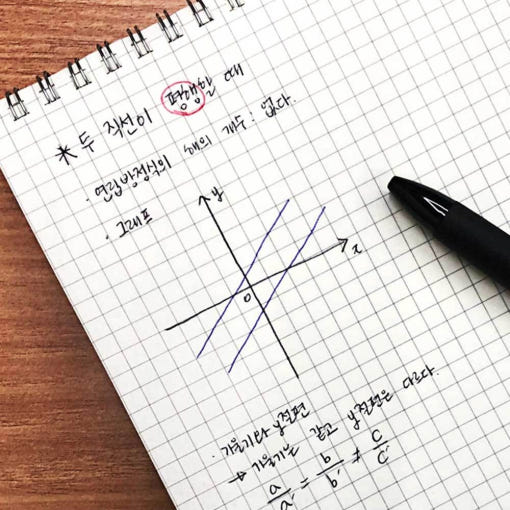 * 두 직선이 평행할 때
· 연립방정식의 해의 개수 : 없다.
· 그래프
y
x
O
· 기울기와 y절편
→ 기울기는 같고 y절편은 다르다.
a/a' = b/b' ≠ c/c'